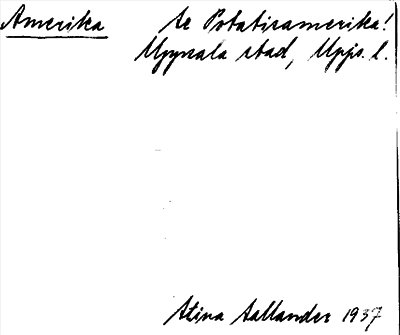 Amerika se Potatisamerika!
Uppsala stad, Upps. l.
Stina Sallander 1937